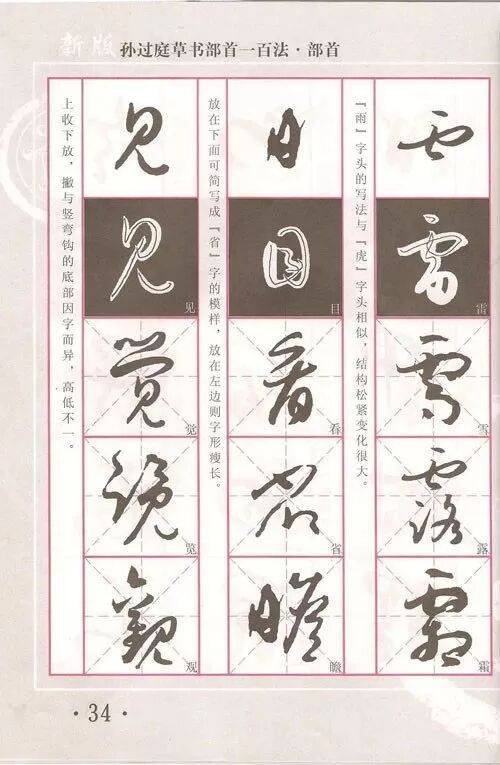 新版 孙过庭草书部首一百法·部首
雷
雪
露
霜
『雨』字头的写法与『虎』字头相似，结构松紧变化很大。
目
看
省
瞻
放在下面可简写成『省』字的模样，放在左边则字形瘦长。
见
觉
览
观
上收下放，撇与竖弯钩的底部因字而异，高低不一。
·34·